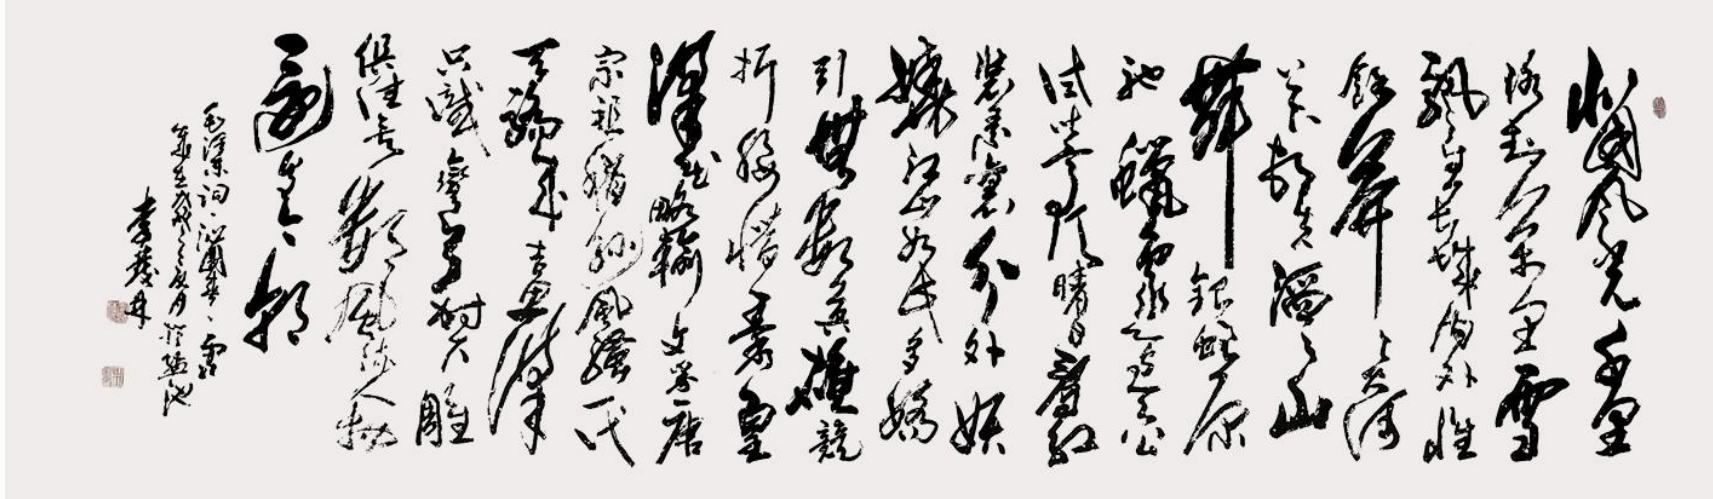 北國風光千里
冰封万里雪
飄望長城内外惟
餘莽莽大河
上下頓失滔滔山
舞銀蛇原
馳蠟象欲與天公
試比高須晴日看紅
裝素裹分外妖
嬈江山如此多嬌
引無數英雄競
折腰惜秦皇
漢武略輸文采唐
宗祖稍遜風騷一代
天驕成吉思漢
只識彎弓射大雕
俱往矣數風流人物
還看今朝
毛澤東詞沁園春雪
歲在戊戌之月於池
李